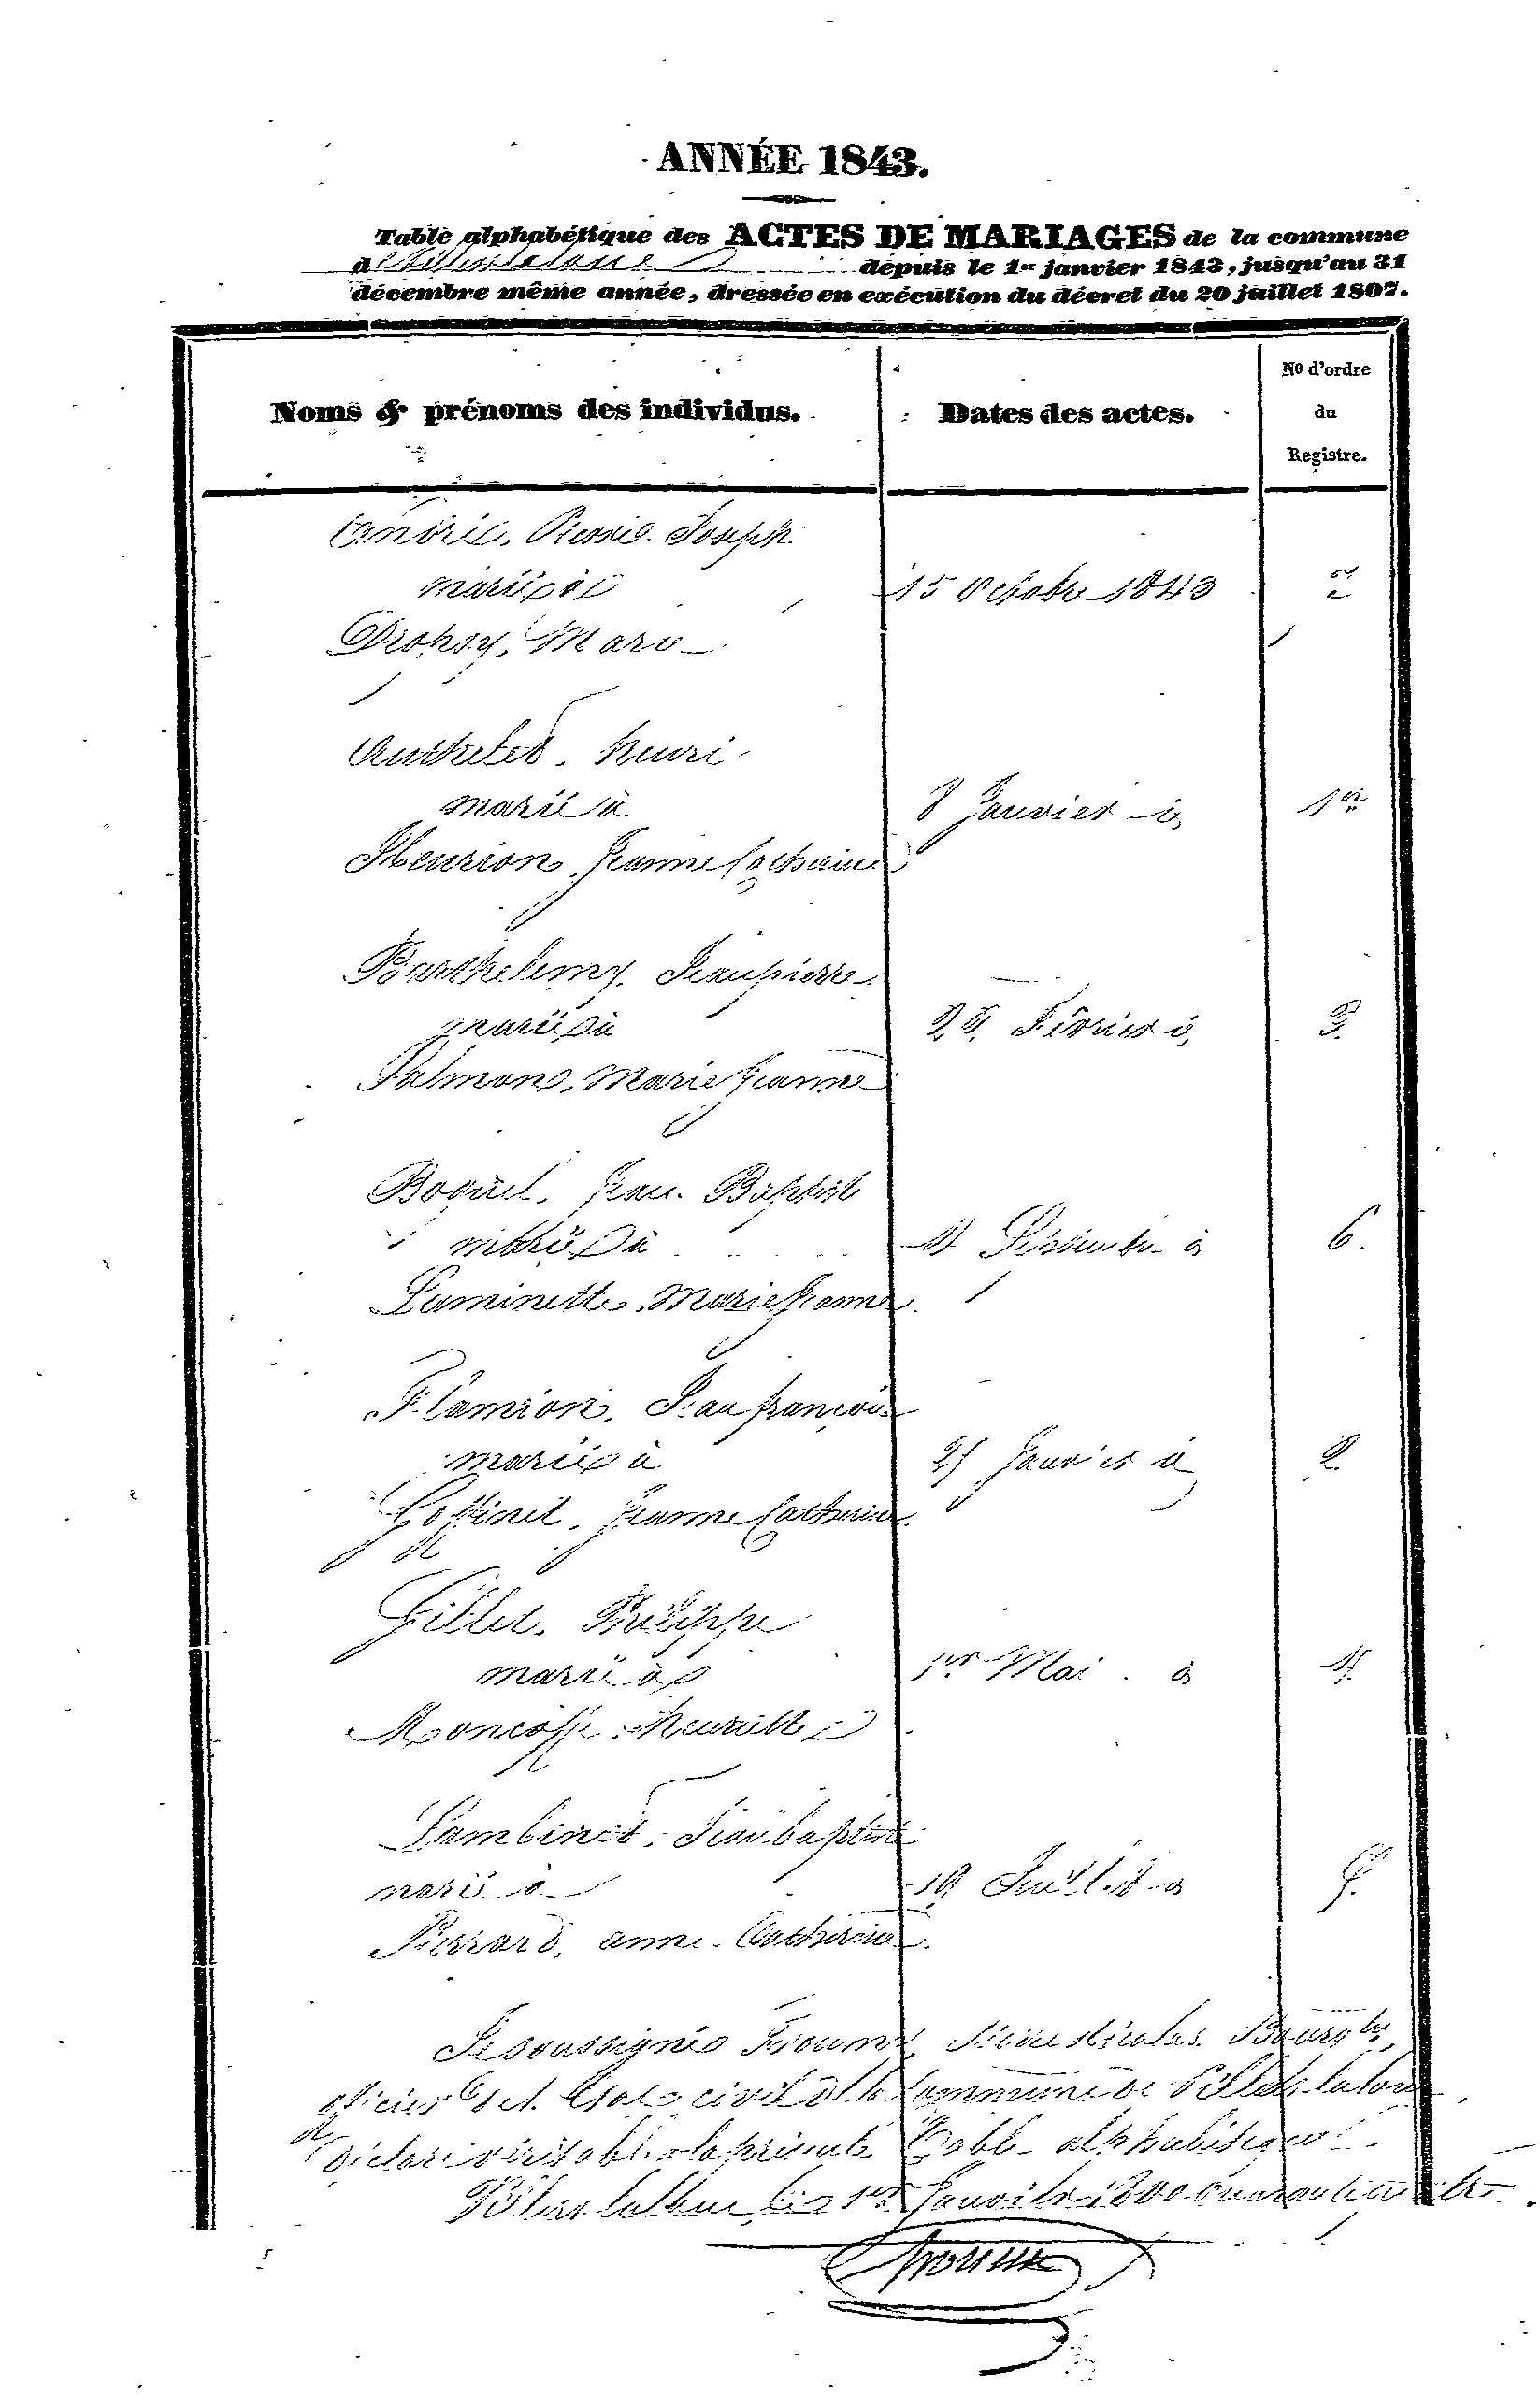 ANNÉE 1843.
Table alphabétique des ACTES DE MARIAGES de la commune
d depuis le 1er janvier 1843, jusqu'au 31
décembre même année, dressée en exécution du décret du 20 juillet 1807.
Noms & prénoms des individus.
Dates des actes.
No d'ordre
du
Registre.
André, Pierre Joseph
marié à 15 Octobre 1843
Dropsy, Marie
henri
marié à 8 Janvier id 1er
Henrion, Jeanne Catherine
Barthelemy, Jean pierre
marié à Février id 3.
Salmon, Marie Jeanne
Boquel, Jean Baptiste
marié à 6.
Laminette, Marie Jeanne
Flamion, Jean françois
marié à Janvier id 2.
Goffinet, Jeanne Catherine
Gillet, Philippe
marié à 1er Mai id 4.
henriette
Lambinet, Jean baptiste
marié à 19 Juillet id 5.
Pierrard, anne Catherine
Je soussigné Nicolas Bourgtre,
officier de l'état civil de la Commune de
déclare véritable la présente Table alphabétique.
le 1er Janvier 1800 quarante quatre.